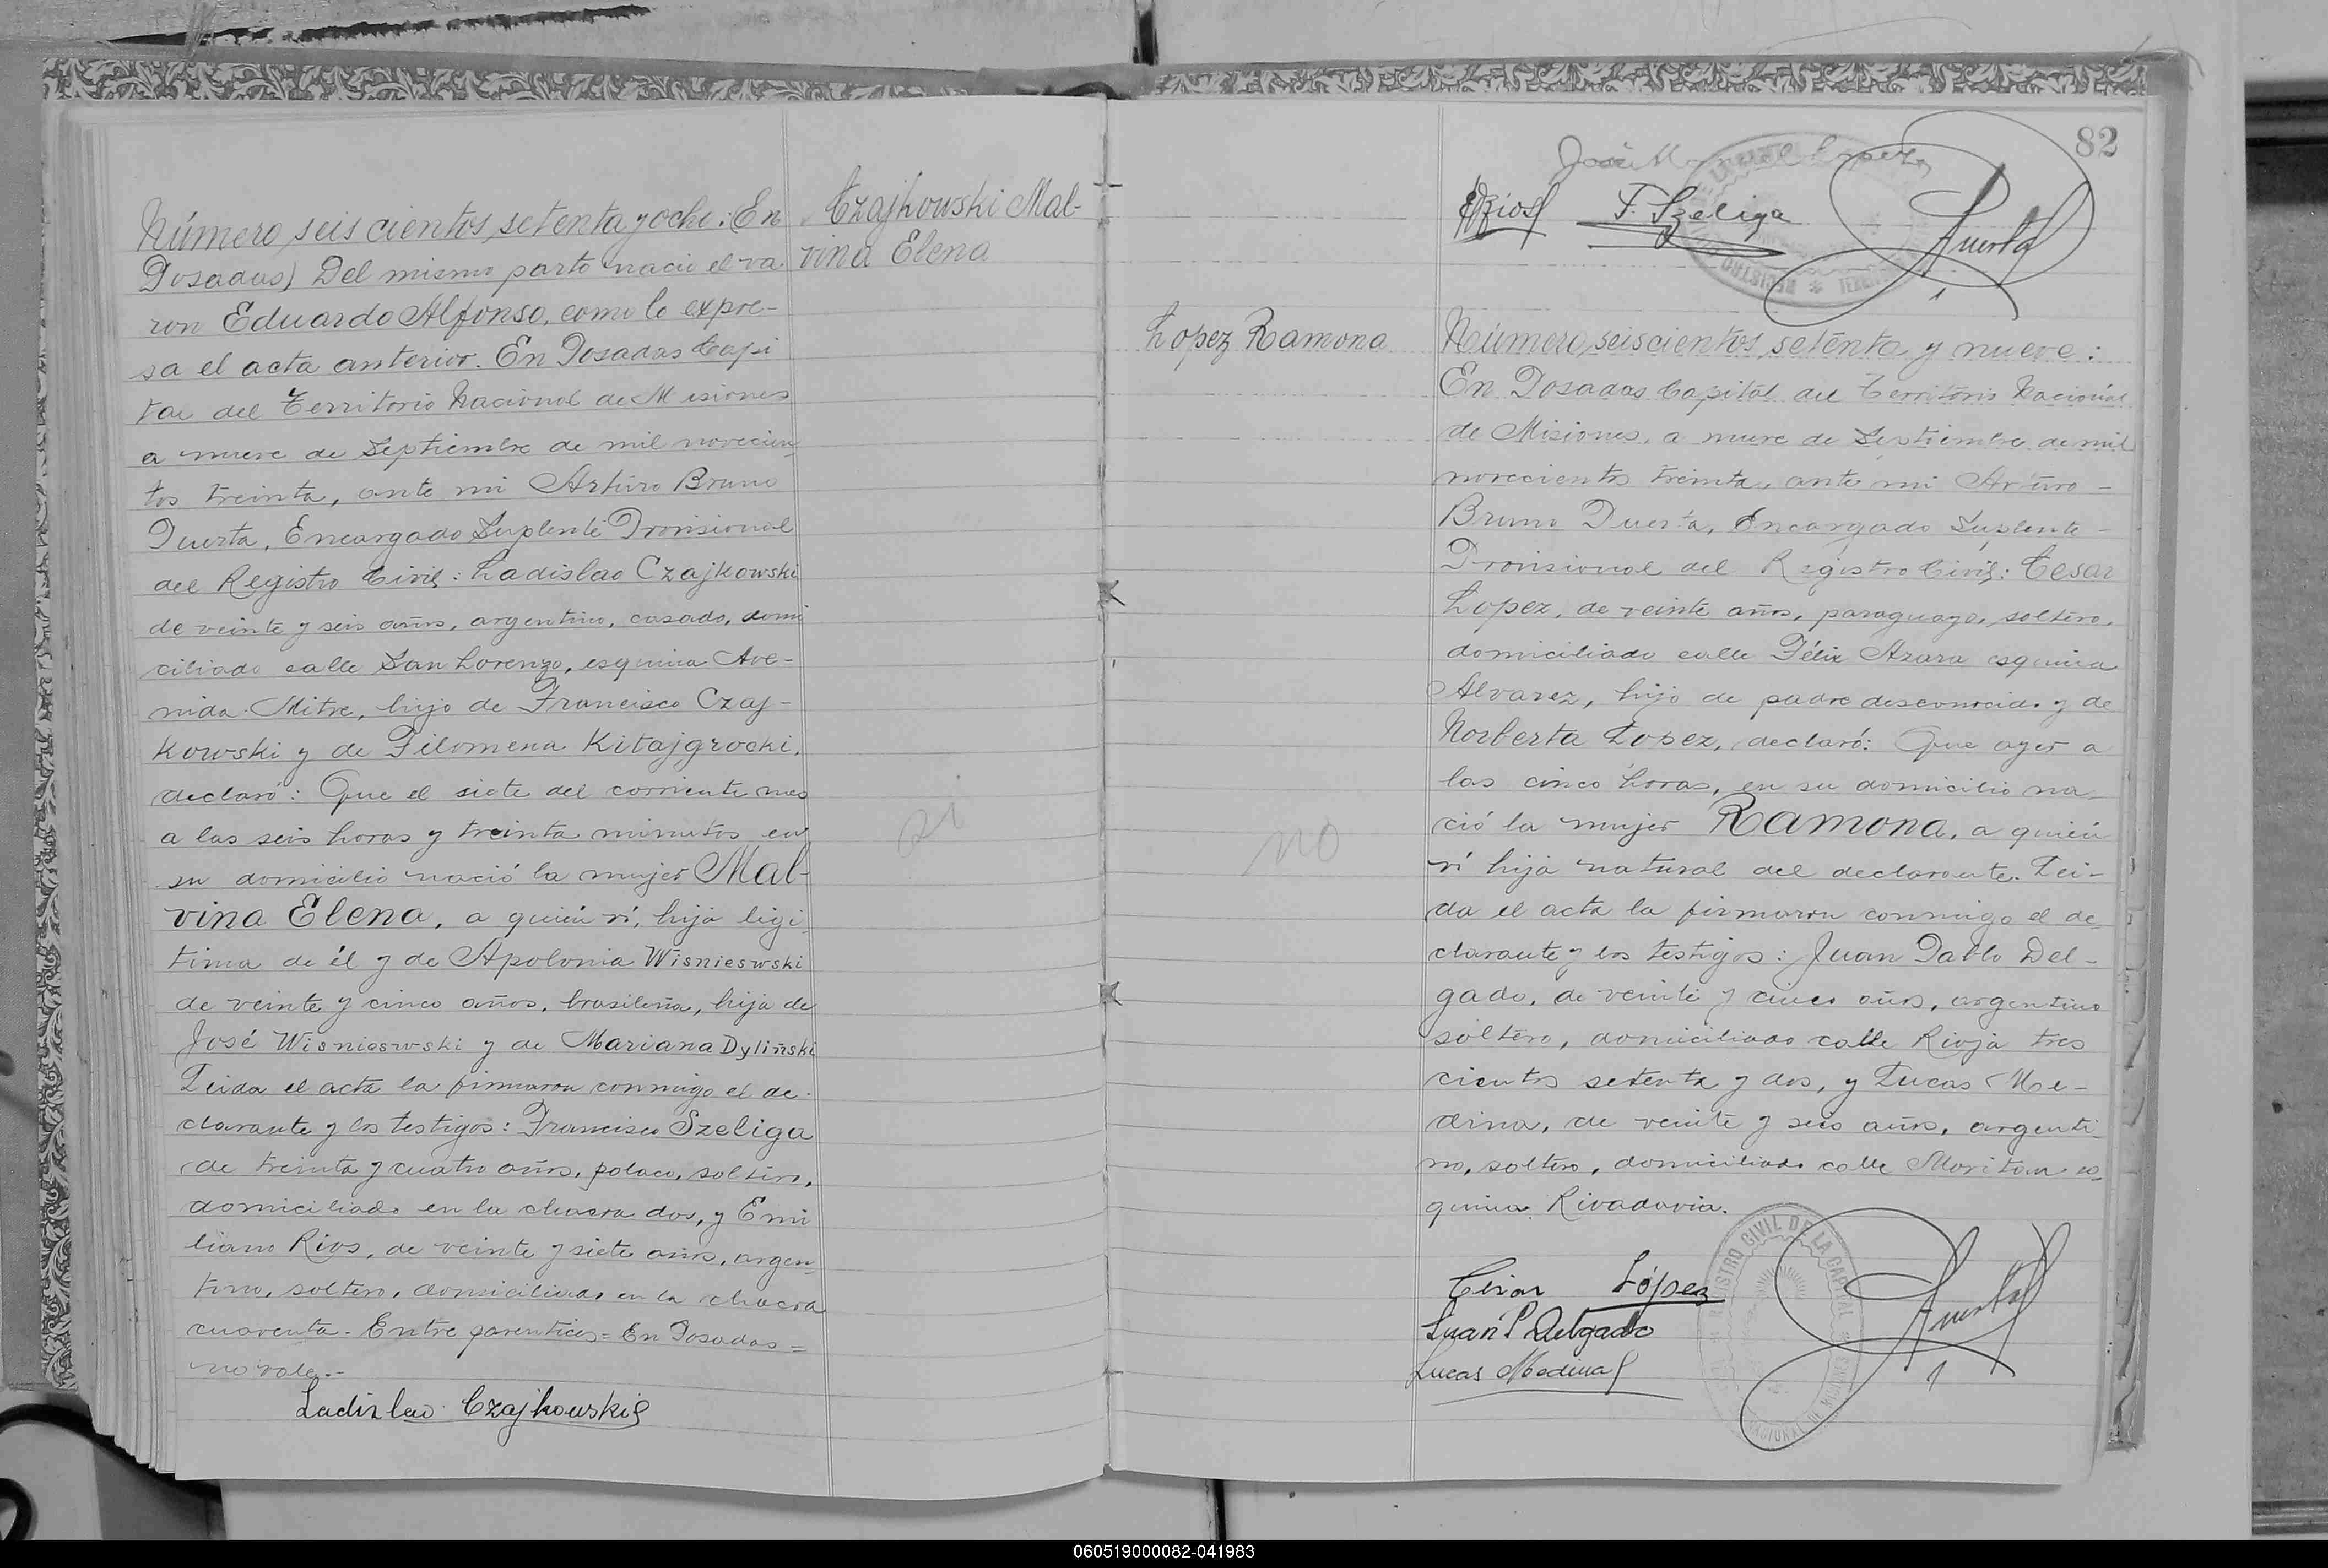 Número seiscientos setenta y ocho: (En
Posadas) Del mismo parto nació el va
ron Eduardo Alfonso, como lo expre-
sa el acta anterior. En Posadas Capi
tal del Territorio Nacional de Misiones
a nueve de Septiembre de mil novecien
tos treinta, ante mi Arturo Bruno
Puerta, Encargado Suplente Provisional
del Registro Civil: Ladislao Czajkowski
de veinte y seis años, argentino, casado, domi
ciliado calle San Lorenzo, esquina Ave-
nida Mitre, hijo de Francisco Czaj-
kowski y de Filomena Kitajgrocki,
declaró: Que el siete del corriente mes
a las seis horas y treinta minutos en
su domicilio nació la mujer Mal-
vina Elena, a quién ví, hija ligi
tima de él y de Apolonia Wisnieswski
de veinte y cinco años, brasileña, hija de
José Wisnieswski y de Mariana Dyliñski
Leida el acta la firmaron conmigo el de-
clarante y los testigos: Francisco Szeliga
de treinta y cuatro años, polaco, soltero,
domiciliado en la chacra dos, y Emi
liano Rios, de veinte y siete años, argen
tino, soltero, domiciliado en la chacra
cuarenta. Entre parentices = En Posadas =
no vale.-
Ladislao Czajkowski
Czajkowski Mal-
vina Elena
si
82
José Manuel Lopez
E Rios F. Szeliga Puerta
Lopez Ramona
no
Número seiscientos setenta y nueve:
En Posadas Capital del Territorio Nacional
de Misiones, a nueve de Septiembre de mil
novecientos treinta, ante mi Arturo -
Bruno Puerta, Encargado Suplente -
Provisional del Registro Civil: Cesar
Lopez, de veinte años, paraguayo, soltero,
domiciliado calle Félix Azara esquina
Alvarez, hijo de padre desconocido y de
Norberta Lopez, declaró: Que ayer a
las cinco horas, en su domicilio na
ció la mujer Ramona, a quién
ví hija natural del declarante. Lei-
da el acta la firmaron conmigo el de
clarante y los testigos: Juan Pablo Del-
gado, de veinte y cinco años, argentino
soltero, domiciliado calle Rioja tres
cientos setenta y dos, y Lucas Me-
dina, de veinte y seis años, argenti
no, soltero, domiciliado calle Moritan es
quina Rivadavia.
REGISTRO CIVIL DE LA CAPITAL
NACIONAL DE MISIONES
Cesar López
Juan P Delgado
Lucas Medina
Puerta
060519000082-041983